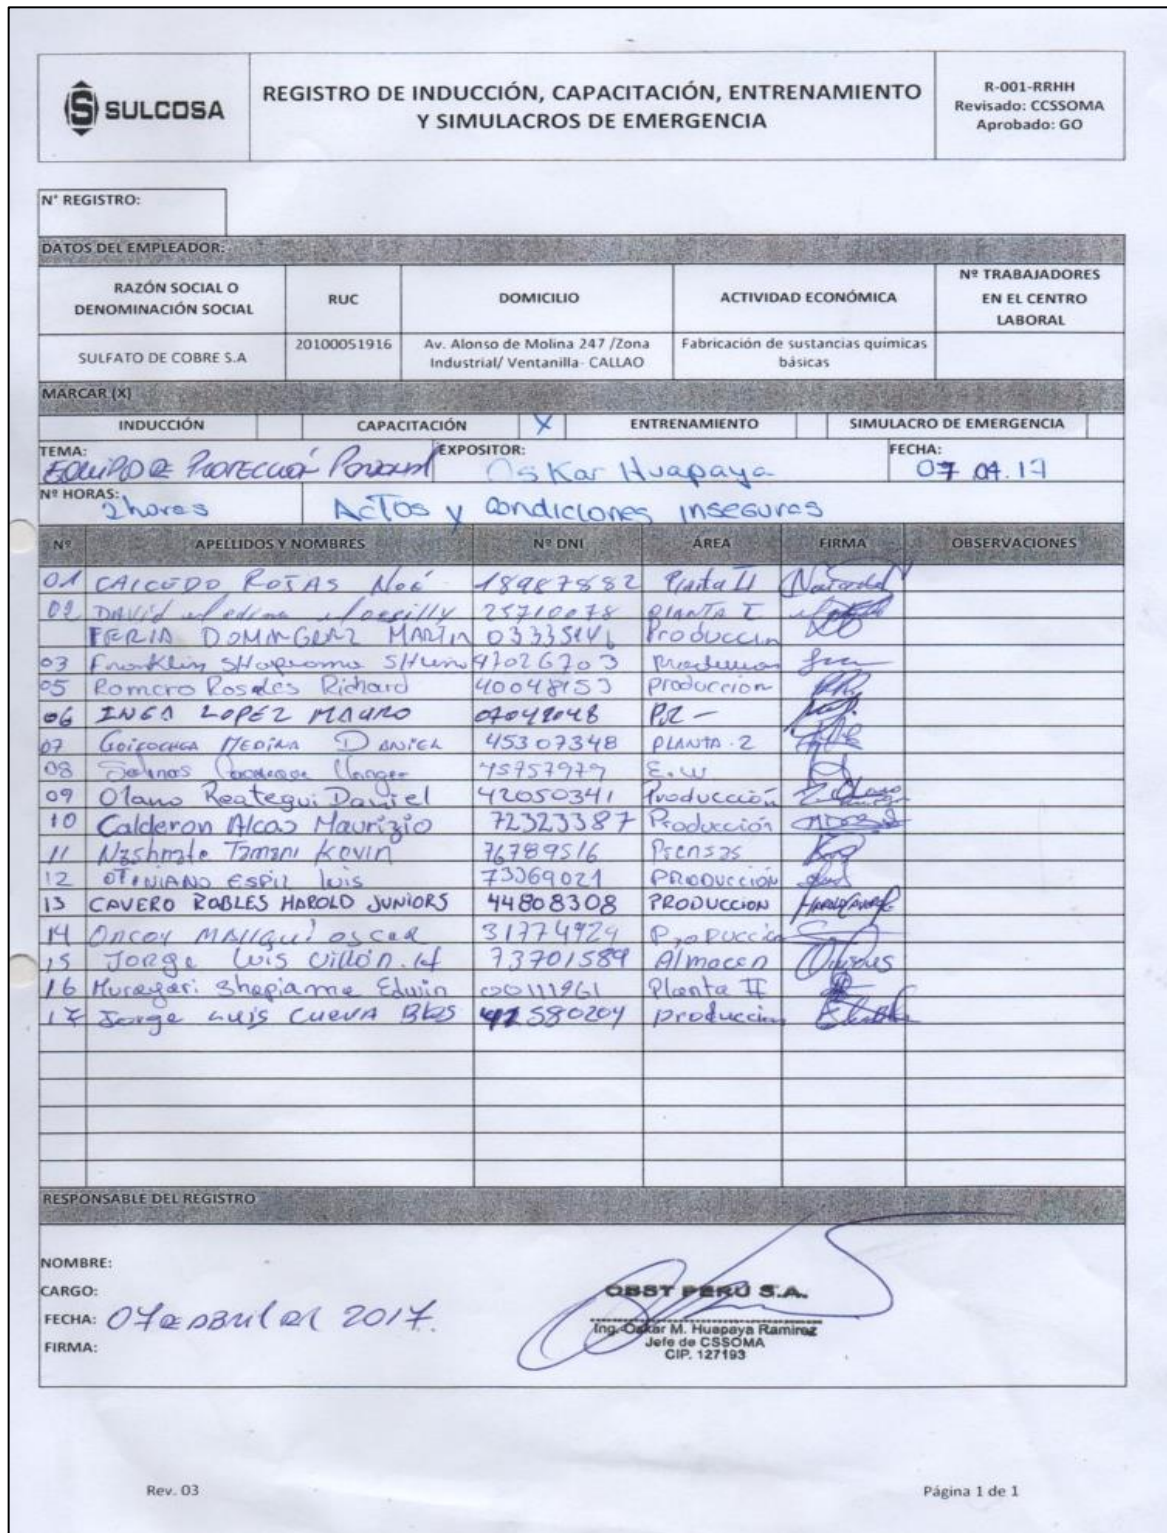 SULCOSA
REGISTRO DE INDUCCIÓN, CAPACITACIÓN, ENTRENAMIENTO
Y SIMULACROS DE EMERGENCIA
R-001-RRHH
Revisado: CCSSOMA
Aprobado: GO
N° REGISTRO:
DATOS DEL EMPLEADOR:
RAZÓN SOCIAL O DENOMINACIÓN SOCIAL RUC DOMICILIO ACTIVIDAD ECONÓMICA Nº TRABAJADORES EN EL CENTRO LABORAL
SULFATO DE COBRE S.A 20100051916 Av. Alonso de Molina 247 /Zona Industrial/ Ventanilla- CALLAO Fabricación de sustancias químicas básicas
MARCAR (X)
INDUCCIÓN CAPACITACIÓN X ENTRENAMIENTO SIMULACRO DE EMERGENCIA
TEMA: EQUIPO DE PROTECCIÓN EXPOSITOR: Oskar Huapaya FECHA: 07.04.17
Nº HORAS: 2 horas Actos y Condiciones inseguras
Nº APELLIDOS Y NOMBRES Nº DNI ÁREA FIRMA OBSERVACIONES
01 CAICEDO ROJAS Noé 18987882 Planta II
02 David Medina 25710078 PLANTA I
FERIA DOMINGUEZ MARTIN Producción
03 Franklin 47026703
05 Romero Rosales Richard 40048153 producción
06 INGA LOPEZ MAURO
07 MEDINA DANIEL 45307348 PLANTA-2
08 Salinas 45957979 E.W
09 Olano Reategui Daniel 42050341 Producción
10 Calderon Alcas Maurizio 72323387 Producción
11 Kevin 76789516 Prensas
12 OTINIANO ESPIL luis 73369021 PRODUCCIÓN
13 CAVERO ROBLES HAROLD JUNIORS 44808308 PRODUCCION
14 oscar 31774924 Producción
15 Jorge Luis Villón.H 73701589 Almacen
16 Murayari Shapiama Edwin 00111961 Planta II
17 Jorge Luis CUEVA Blas 42580204 produccion
RESPONSABLE DEL REGISTRO
NOMBRE:
CARGO:
FECHA: 07 de abril del 2017.
FIRMA:
OBST PERÚ S.A.
Ing. Oskar M. Huapaya Ramirez
Jefe de CSSOMA
CIP. 127193
Rev. 03 Página 1 de 1